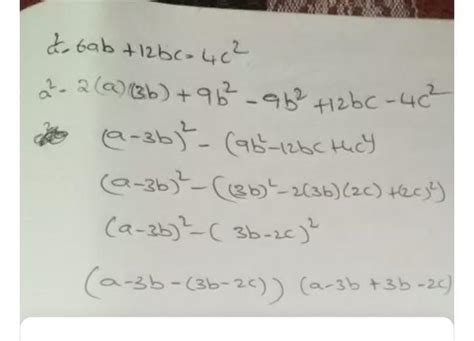 a²- 6ab +12bc - 4c²
a² - 2(a)(3b) + 9b² - 9b² +12bc - 4c²
(a-3b)² - (9b²-12bc+4c²)
(a-3b)² - ((3b)² - 2(3b)(2c) + (2c)²)
(a-3b)² - ( 3b-2c)²
(a-3b-(3b-2c)) (a-3b +3b-2c)